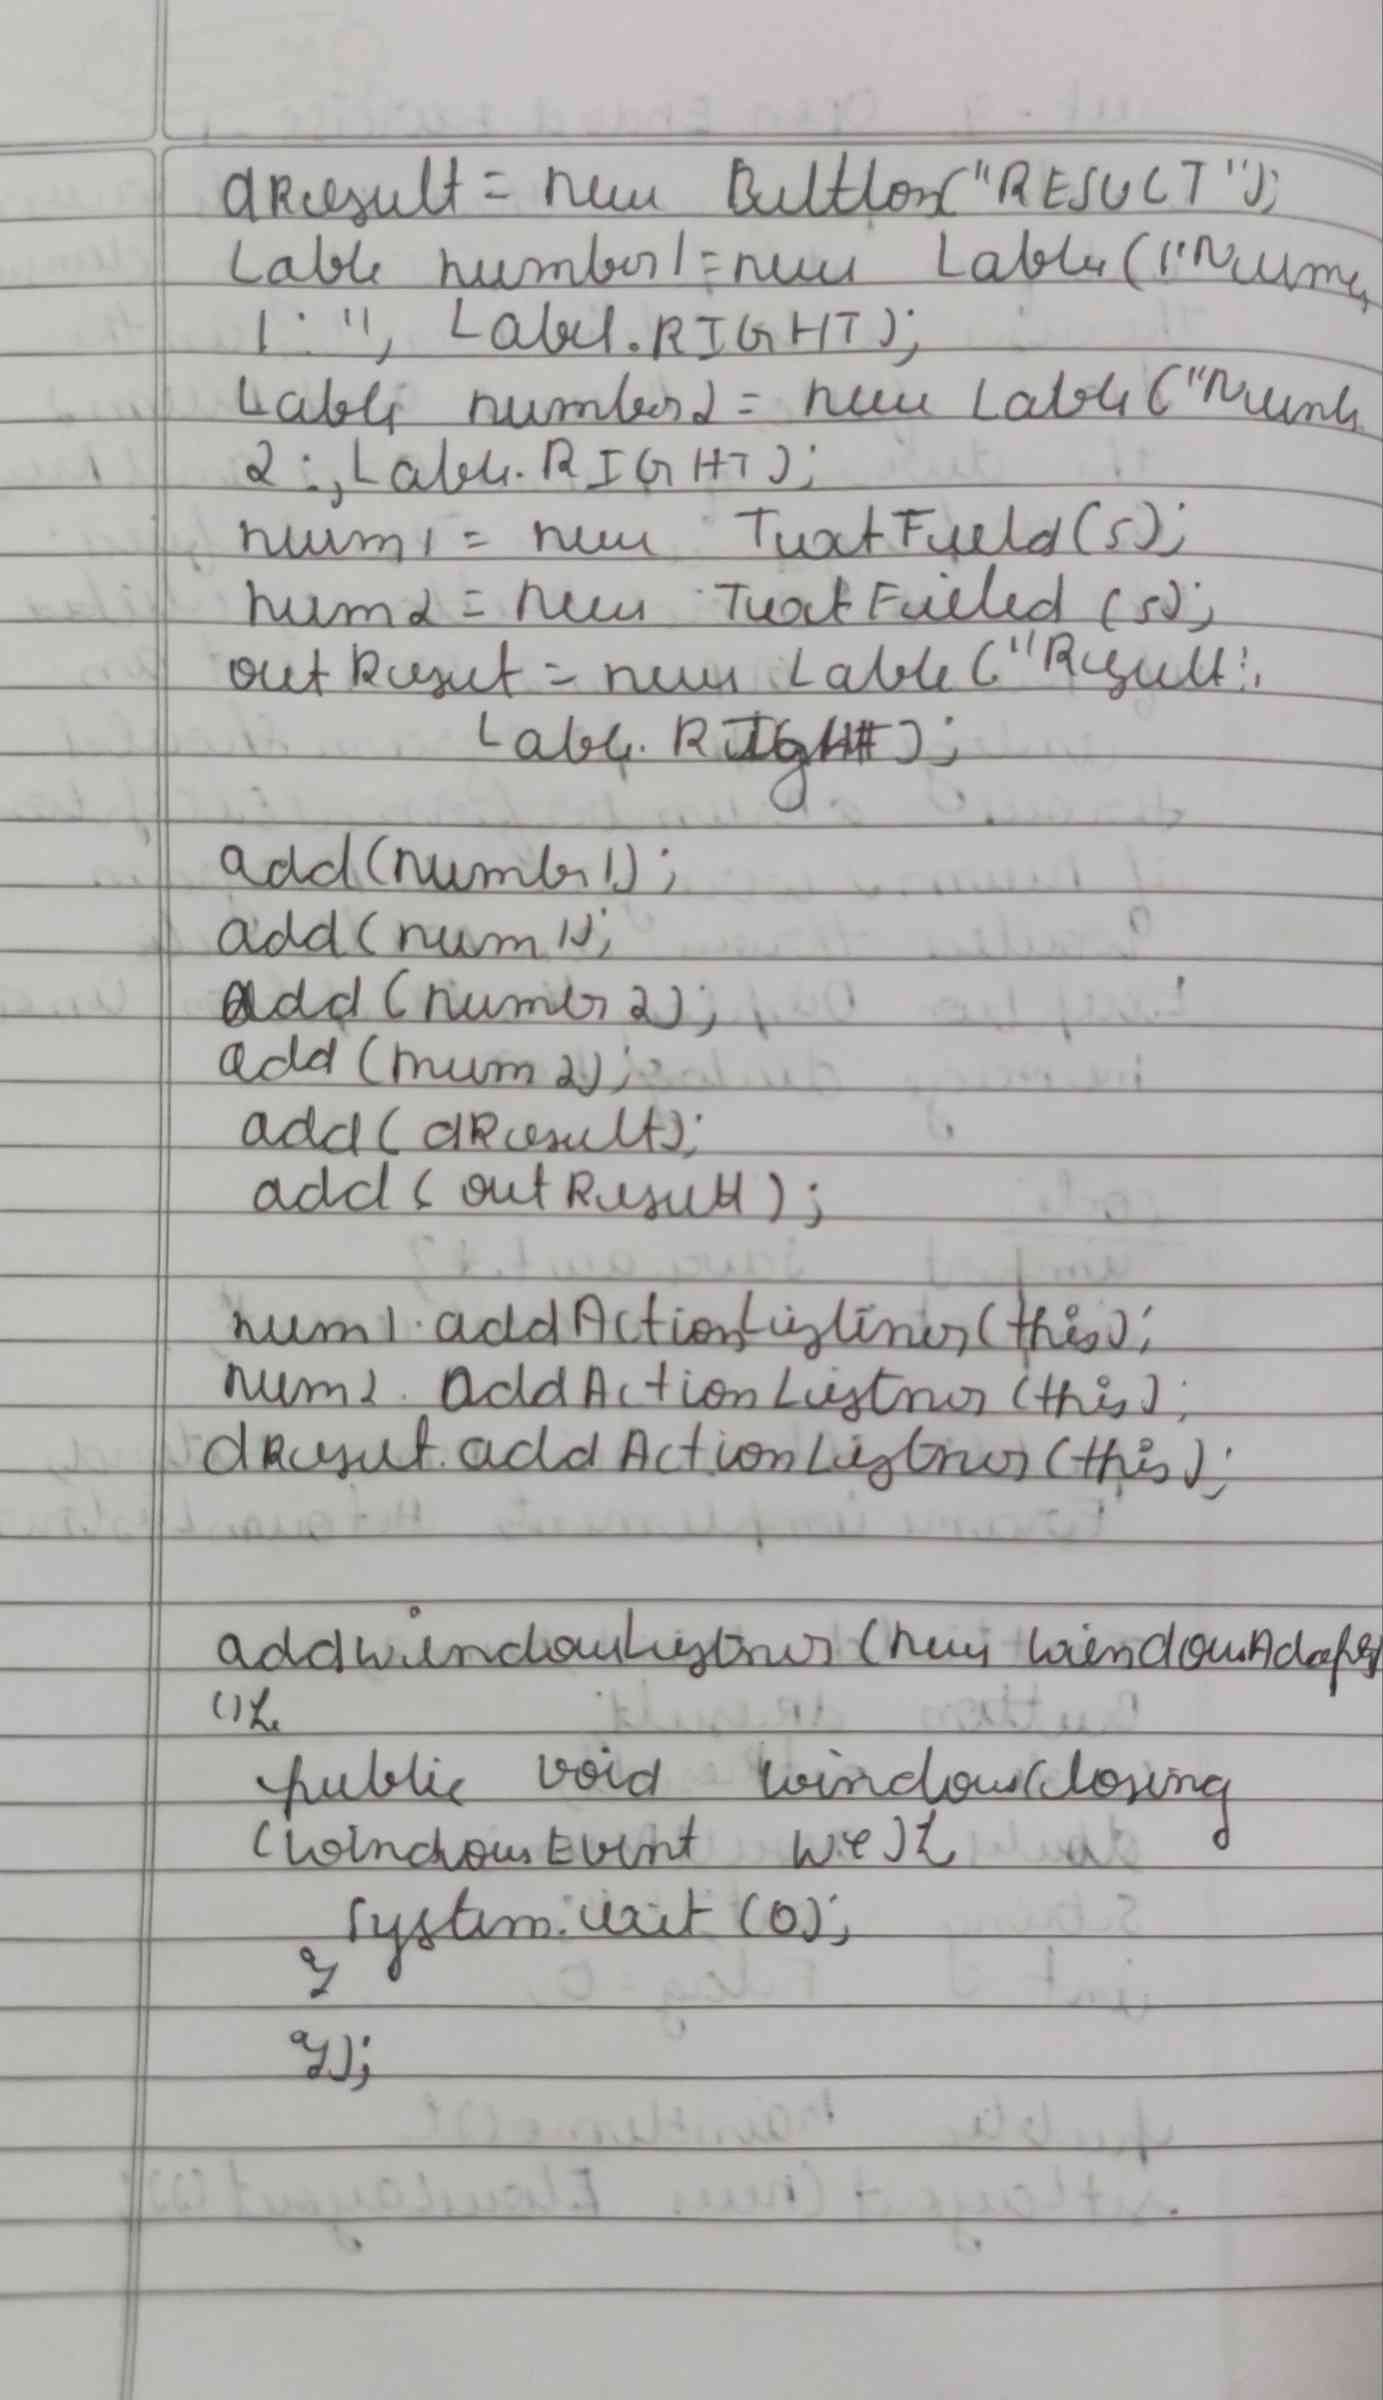 dResult = new Button("RESULT");
Lable number1 = new Lable("Num
1: ", Label.RIGHT);
Lable number2 = new Lable("Num
2:, Lable.RIGHT);
num1 = new TextField(5);
num2 = new TextFieled (5);
outResut = new Lable("Result:
Lable.RIGHT);
add(number1);
add(num1);
add(number2);
add(num2);
add(dResult);
add(outResult);
num1.addActionListiner(this);
num2.addActionListner(this);
dResut.addActionListner(this);
addwindowListner(new WindowAdapter
(){
public void windowClosing
(WindowEvent we){
System.exit(0);
}
});